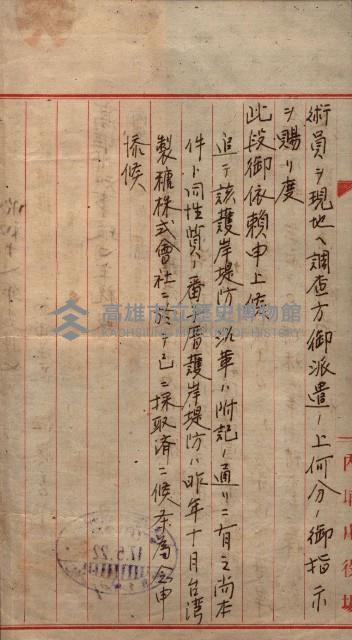 術員ヲ現地ヘ調査方御派遣ノ上何分ノ御指示
ヲ賜リ度
此段御依頼申上候
追テ該護岸堤防ノ沿革ハ附記ノ通リニ有之尚本
件ト同性質ノ番仔厝護岸堤防ハ昨年十月台湾
製糖株式會社ニ於テ已ニ採取済ニ候条為念申
添候
高雄市立歷史博物館
KAOHSIUNG MUSEUM OF HISTORY
17.5.22